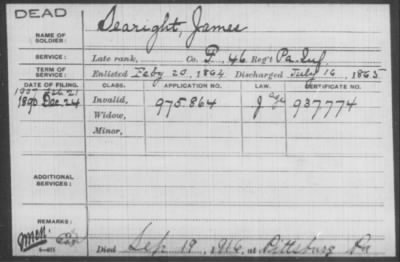 DEAD
NAME OF SOLDIER: Searight, James
SERVICE: Late rank, Co. F, 46 Reg't Pa. Inf.
TERM OF SERVICE: Enlisted Feby 20, 1864 Discharged July 16, 1865
DATE OF FILING. CLASS. APPLICATION NO. LAW. CERTIFICATE NO.
1907
1890 Dec. 24 Invalid, 975.864 J 937774
Widow,
Minor,
ADDITIONAL SERVICES:
REMARKS:
Died Sep. 19, 1916, at Pittsburg Pa